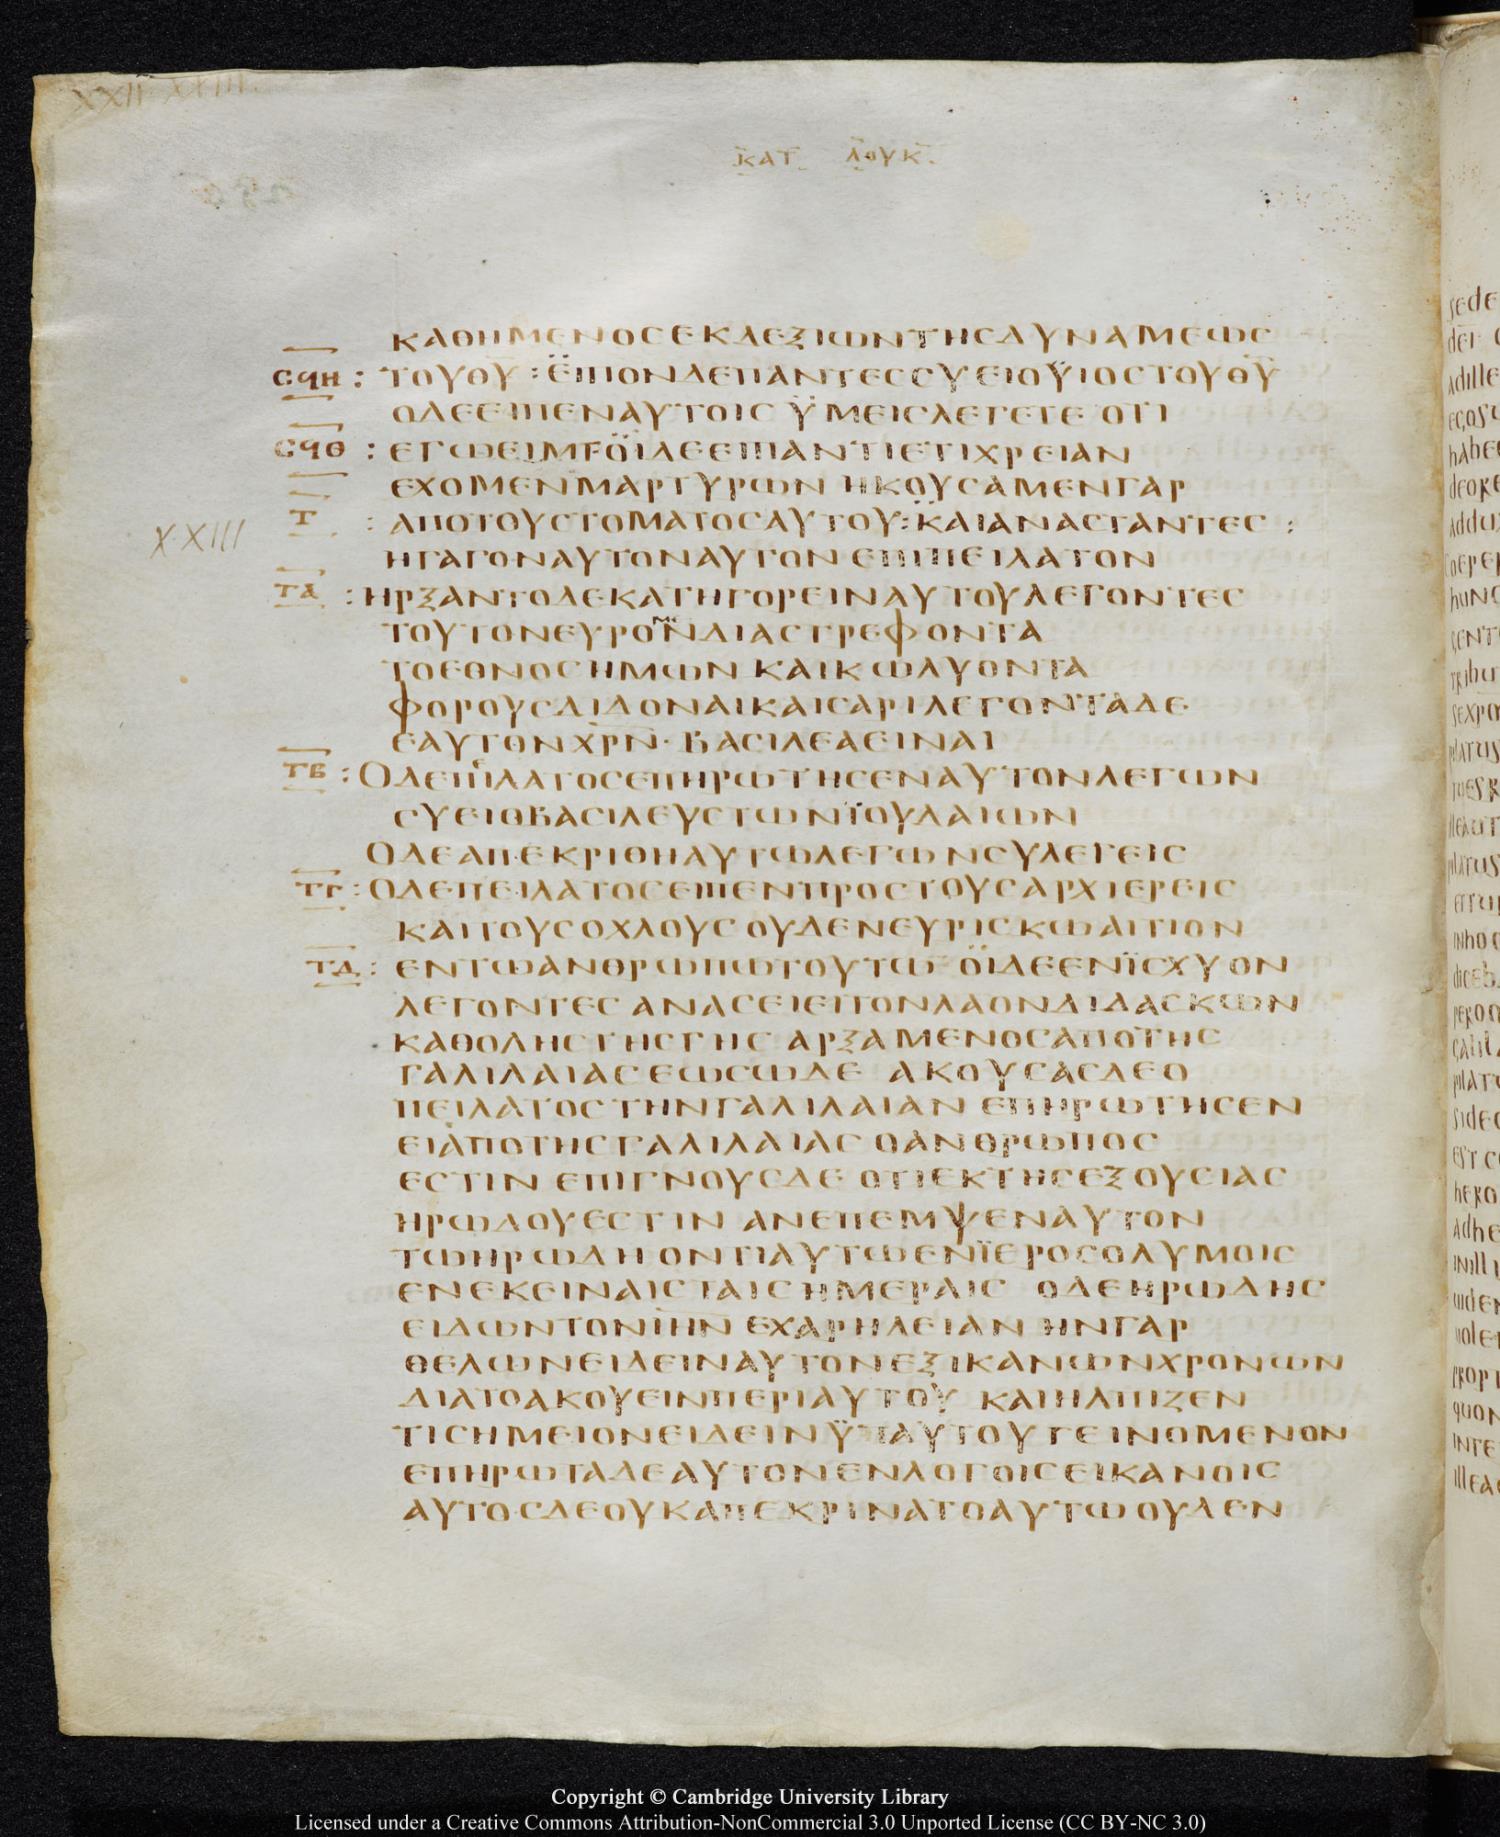 XXII XXIII.
ΚΑΤ ΛΟΥΚ
ΚΑΘΗΜΕΝΟCΕΚΔΕΞΙΩΝΤΗCΔΥΝΑΜΕΩC
CϤΗ : ΤΟΥΘΥ : ΕΙΠΟΝΔΕΠΑΝΤΕCCΥΕΙΟΥΪΟCΤΟΥΘΥ
ΟΔΕΕΙΠΕΝΑΥΤΟΙC ΫΜΕΙCΛΕΓΕΤΕ ΟΤΙ
CϤΘ : ΕΓΩΕΙΜΙ ΟΪΔΕΕΙΠΑΝΤΙΕΤΙΧΡΕΙΑΝ
ΕΧΟΜΕΝΜΑΡΤΥΡΩΝ ΗΚΟΥCΑΜΕΝΓΑΡ
Τ : ΑΠΟΤΟΥCΤΟΜΑΤΟCΑΥΤΟΥ : ΚΑΙΑΝΑCΤΑΝΤΕC :
XXIII
ΗΓΑΓΟΝΑΥΤΟΝΑΥΤΟΝ ΕΠΙΠΕΙΛΑΤΟΝ
ΤΑ : ΗΡΞΑΝΤΟΔΕΚΑΤΗΓΟΡΕΙΝΑΥΤΟΥΛΕΓΟΝΤΕC
ΤΟΥΤΟΝΕΥΡΟΜΝΔΙΑCΤΡΕΦΟΝΤΑ
ΤΟΕΘΝΟCΗΜΩΝ ΚΑΙΚΩΛΥΟΝΤΑ
ΦΟΡΟΥCΔΙΔΟΝΑΙΚΑΙCΑΡΙΛΕΓΟΝΤΑΔΕ
ΕΑΥΤΟΝΧΡΝ · ΒΑCΙΛΕΑΕΙΝΑΙ
ΤΒ : ΟΔΕΠΙΛΑΤΟCΕΠΗΡΩΤΗCΕΝΑΥΤΟΝΛΕΓΩΝ
CΥΕΙΟΒΑCΙΛΕΥCΤΩΝΪΟΥΔΑΙΩΝ
ΟΔΕΑΠΕΚΡΙΘΗΑΥΤΩΛΕΓΩΝCΥΛΕΓΕΙC
ΤΓ : ΟΔΕΠΕΙΛΑΤΟCΕΙΠΕΝΠΡΟCΤΟΥCΑΡΧΙΕΡΕΙC
ΚΑΙΤΟΥCΟΧΛΟΥC ΟΥΔΕΝΕΥΡΙCΚΩΑΙΤΙΟΝ
ΤΔ : ΕΝΤΩΑΝΘΡΩΠΩΤΟΥΤΩ ΟΪΔΕΕΝΪCΧΥΟΝ
ΛΕΓΟΝΤΕC ΑΝΑCΕΙΕΙΤΟΝΛΑΟΝΔΙΔΑCΚΩΝ
ΚΑΘΟΛΗCΤΗCΓΗC ΑΡΞΑΜΕΝΟCΑΠΟΤΗC
ΓΑΛΙΛΑΙΑCΕΩCΩΔΕ ΑΚΟΥCΑCΔΕΟ
ΠΕΙΛΑΤΟCΤΗΝΓΑΛΙΛΑΙΑΝ ΕΠΗΡΩΤΗCΕΝ
ΕΙΑΠΟΤΗCΓΑΛΙΛΑΙΑC ΟΑΝΘΡΩΠΟC
ΕCΤΙΝ ΕΠΙΓΝΟΥCΔΕ ΟΤΙΕΚΤΗCΕΞΟΥCΙΑC
ΗΡΩΔΟΥΕCΤΙΝ ΑΝΕΠΕΜΨΕΝΑΥΤΟΝ
ΤΩΗΡΩΔΗΟΝΤΙΑΥΤΩΕΝΪΕΡΟCΟΛΥΜΟΙC
ΕΝΕΚΕΙΝΑΙCΤΑΙCΗΜΕΡΑΙC ΟΔΕΗΡΩΔΗC
ΕΙΔΩΝΤΟΝΙΗΝ ΕΧΑΡΗΛΕΙΑΝ ΗΝΓΑΡ
ΘΕΛΩΝΕΙΔΕΙΝΑΥΤΟΝΕΞΙΚΑΝΩΝΧΡΟΝΩΝ
ΔΙΑΤΟΑΚΟΥΕΙΝΠΕΡΙΑΥΤΟΥ ΚΑΙΗΛΠΙΖΕΝ
ΤΙCΗΜΕΙΟΝΕΙΔΕΙΝΫΠΑΥΤΟΥΓΕΙΝΟΜΕΝΟΝ
ΕΠΗΡΩΤΑΔΕΑΥΤΟΝΕΝΛΟΓΟΙCΕΙΚΑΝΟΙC
ΑΥΤΟCΔΕΟΥΚΑΠΕΚΡΙΝΑΤΟΑΥΤΩΟΥΔΕΝ
Copyright © Cambridge University Library
Licensed under a Creative Commons Attribution-NonCommercial 3.0 Unported License (CC BY-NC 3.0)